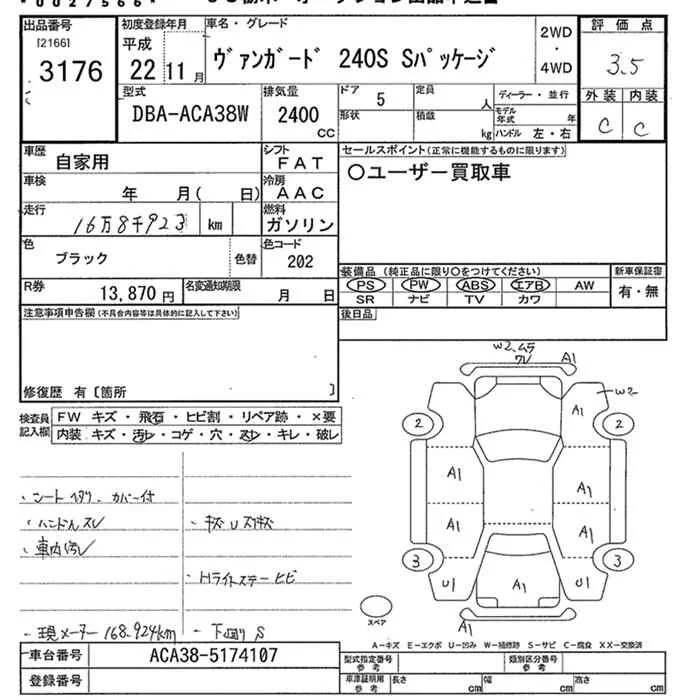 *0027566*
出品番号
[2166]
3176
初度登録年月
平成
22 11月
車名・グレード
ヴァンガード 240S Sパッケージ
2WD
・
4WD
評価点
3.5
外装 内装
C C
型式
DBA-ACA38W
排気量
2400
CC
ドア 5
形状
定員 人
積載 kg
ディーラー・並行
モデル年式 年
ハンドル 左・右
車歴
自家用
シフト
FAT
車検
年 月( 日)
冷房
AAC
走行
16万8千923 km
燃料
ガソリン
色
ブラック
色替
色コード
202
R券
13,870円
名変通知期限
月 日
セールスポイント(正常に機能するものに限ります)
〇ユーザー買取車
装備品 (純正品に限り〇をつけてください)
PS PW ABS エアB AW
SR ナビ TV カワ
新車保証書
有・無
後日品
注意事項申告欄(不具合内容等は具体的に記入して下さい)
修復歴 有〔箇所 〕
検査員記入欄
FW キズ・飛石・ヒビ割・リペア跡・×要
内装 キズ・汚レ・コゲ・穴・スレ・キレ・破レ
・シートヘタリ・カバー付
・ハンドルスレ
・車内汚レ
・キズUスリキズ
・Hライトステーヒビ
・現メーター168.924km
・下回りS
W2.ムラ
ワレ
A1
W2
A1
2
2
A1
A1
A1
A1
3
3
U1
A1
U1
A1
スペア
A-キズ E-エクボ U-凹み W-補修跡 S-サビ C-腐食 XX-交換済
車台番号
ACA38-5174107
登録番号
型式指定番号
参考
類別区分番号
参考
車庫証明用
参考
長さ cm
幅 cm
高さ cm